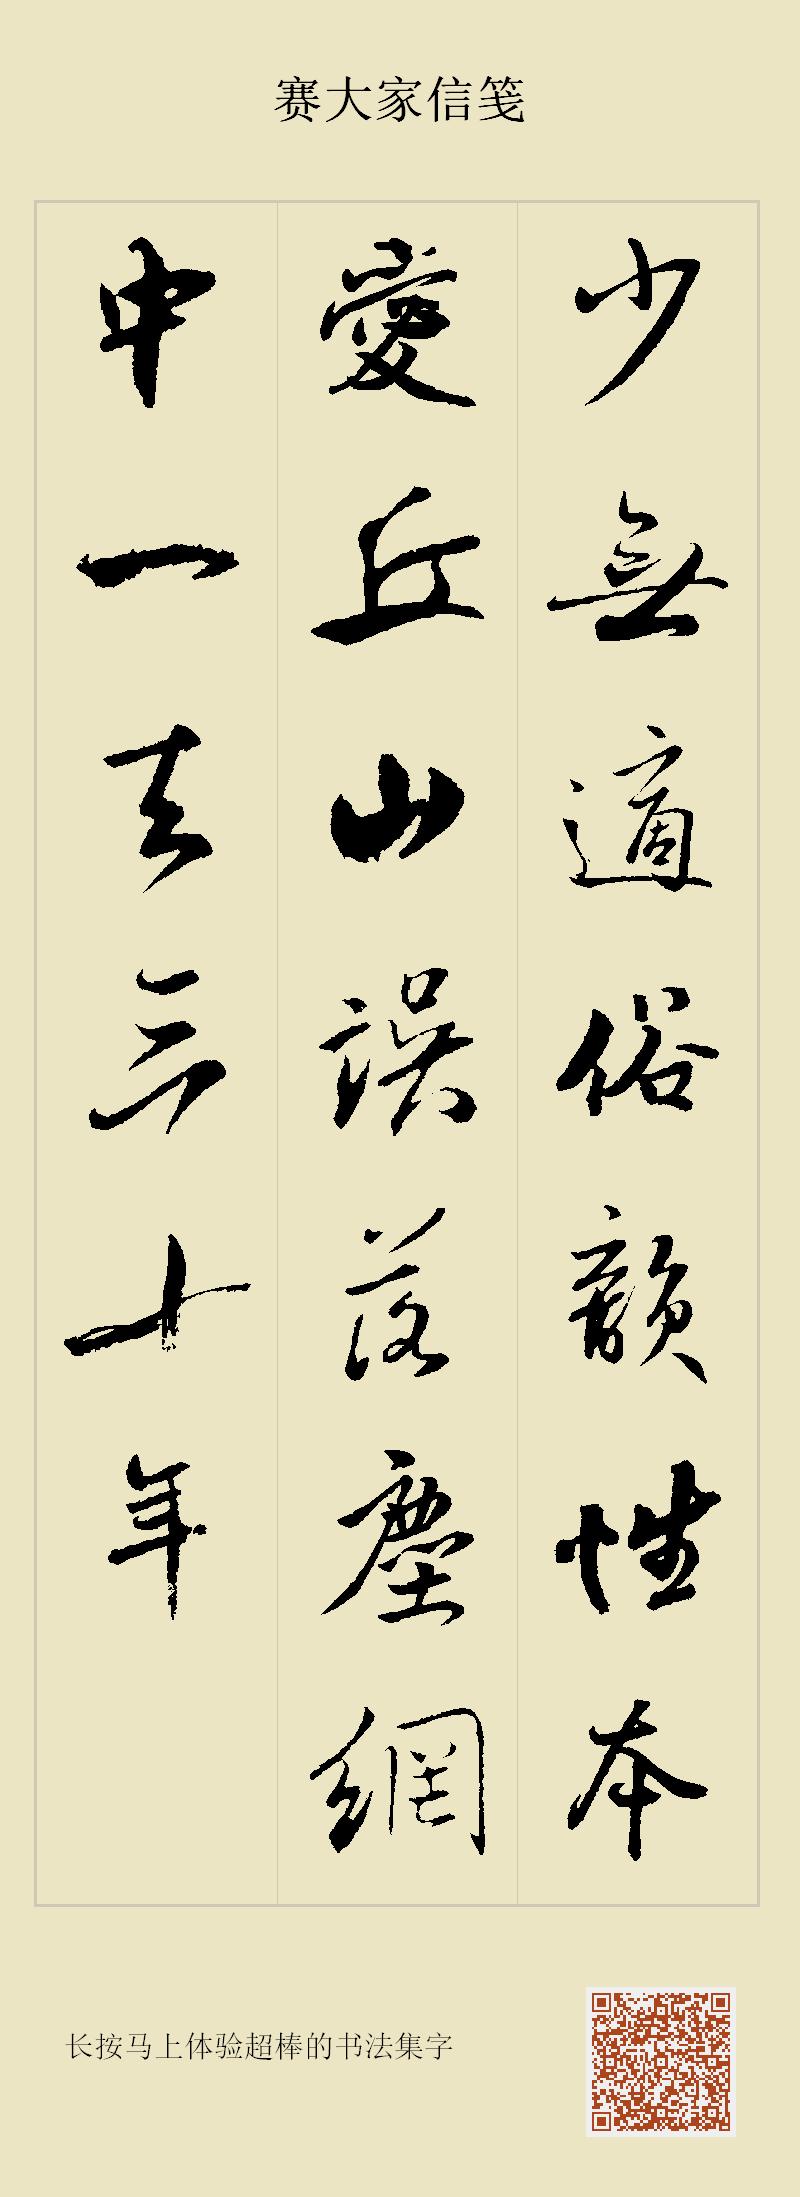 赛大家信笺
少無適俗韻性本
愛丘山誤落塵網
中一去三十年
长按马上体验超棒的书法集字